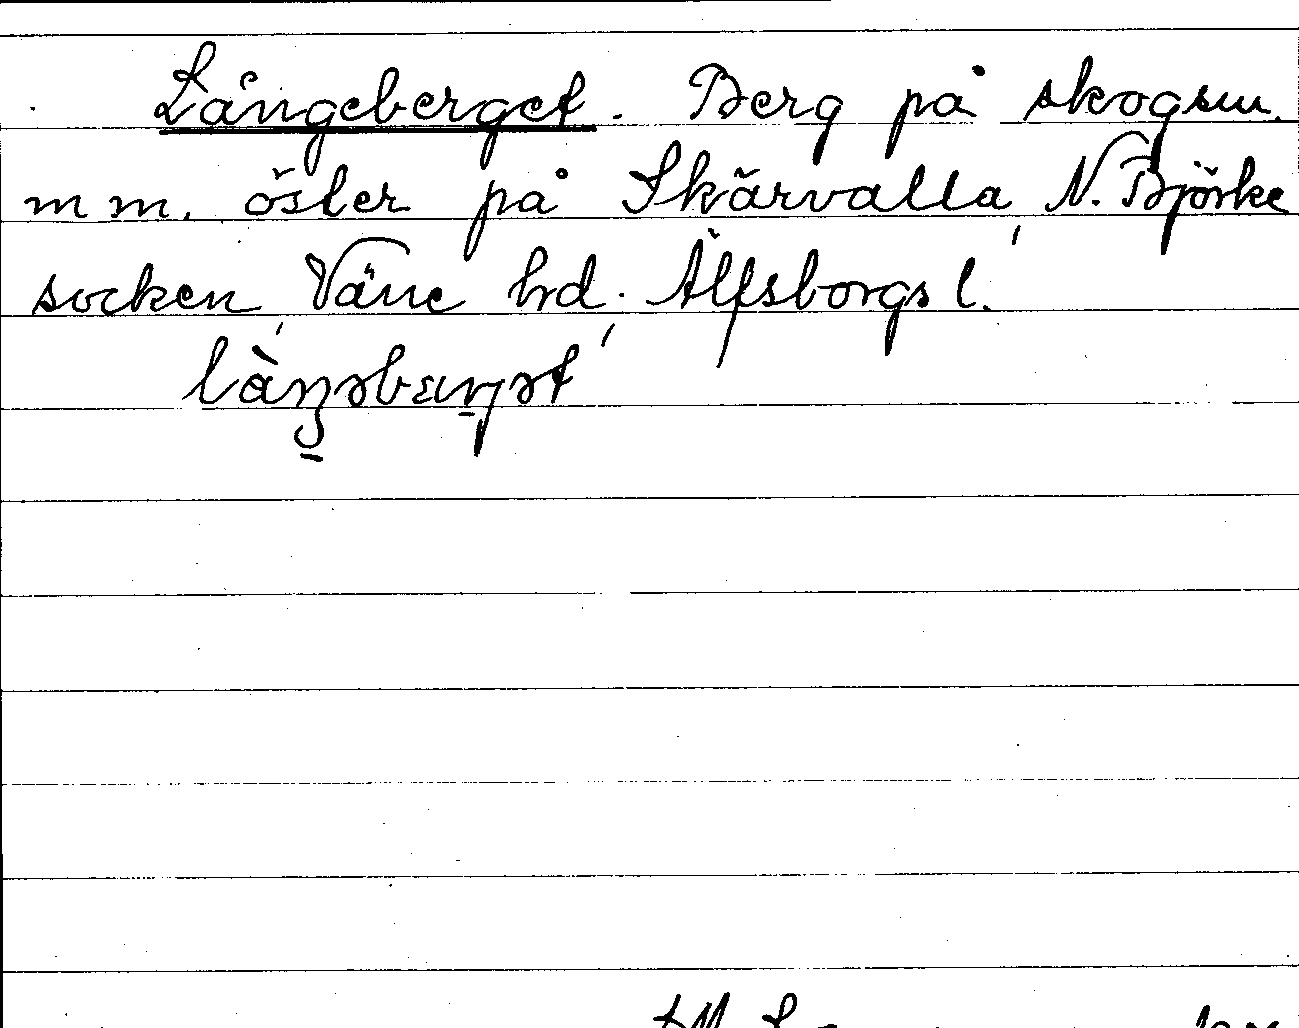 Långeberget. Berg på skogen
mm. öster på Skärvalla, N. Björke
socken, Väne hrd. Älfsborgs l.